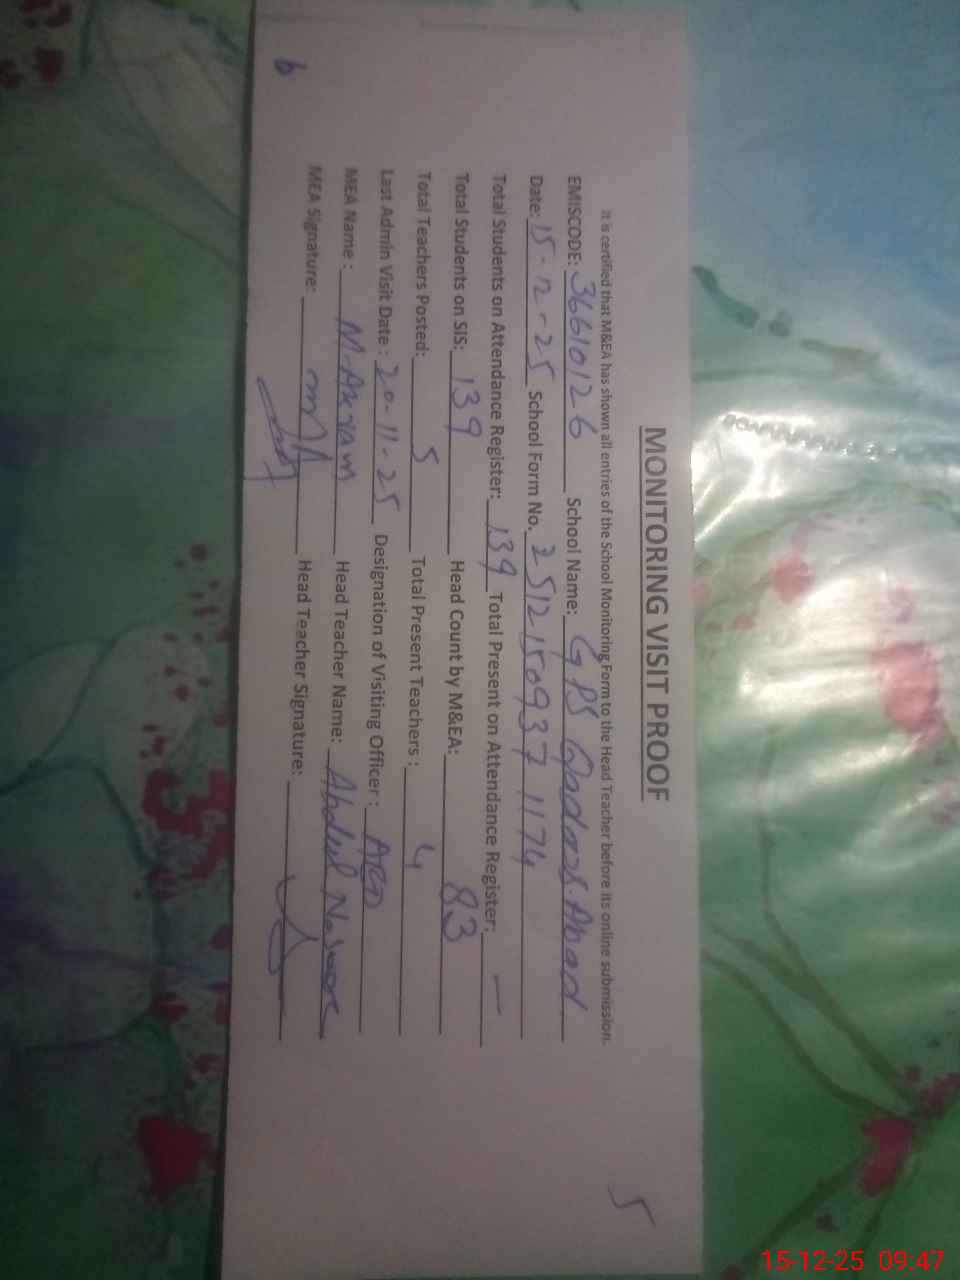 5
MONITORING VISIT PROOF
It is certified that M&EA has shown all entries of the School Monitoring Form to the Head Teacher before its online submission.
EMISCODE: 36610126 School Name: GPS Qadar Abad
Date: 15-12-25 School Form No. 2512150937 1174
Total Students on Attendance Register: 139 Total Present on Attendance Register: —
Total Students on SIS: 139 Head Count by M&EA: 83
Total Teachers Posted: 5 Total Present Teachers : 4
Last Admin Visit Date : 20-11-25 Designation of Visiting Officer :
MEA Name : M-Akram Head Teacher Name: Abdul
MEA Signature: Head Teacher Signature:
15-12-25 09:47